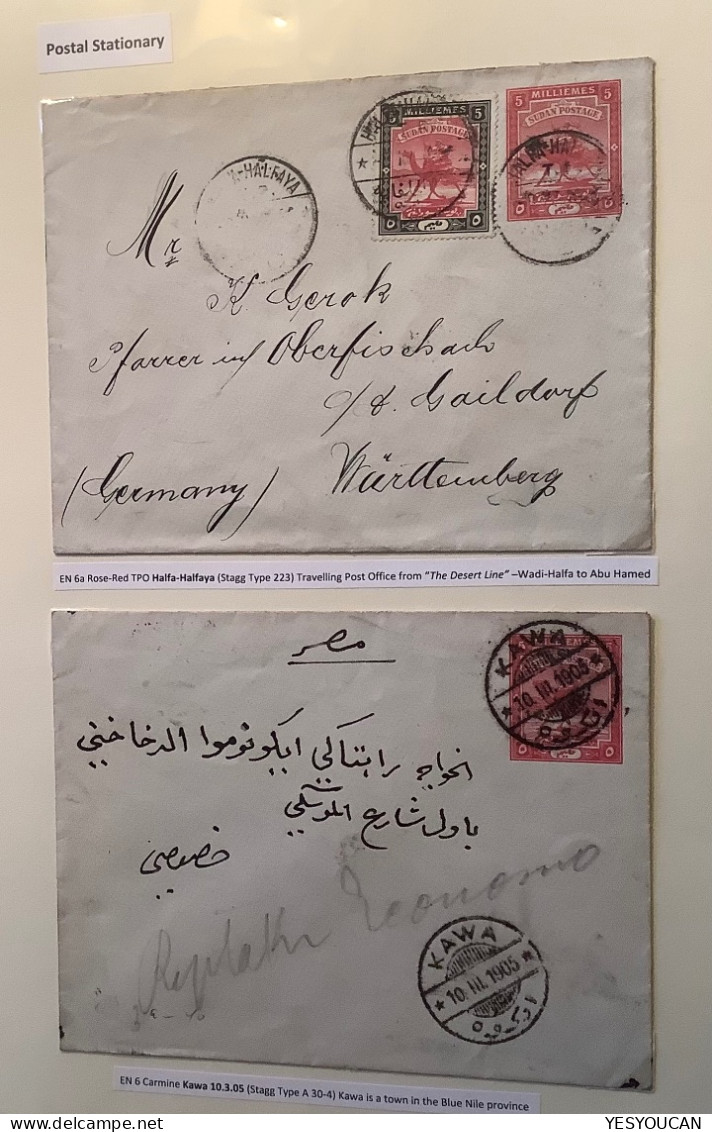 Postal Stationary
5 MILLIEMES 5
SUDAN POSTAGE
5 MILLIEMES 5
SUDAN POSTAGE
-HALFAYA
Mr
K. Gerok
Pfarrer in Oberfischach
o/A. Gaildorf
(Germany) Württemberg
EN 6a Rose-Red TPO Halfa-Halfaya (Stagg Type 223) Travelling Post Office from "The Desert Line" –Wadi-Halfa to Abu Hamed
مصر
KAWA
10.III.1905
الخواجه رابتاكي ايكونوموا الدخاخني
باول شارع الموسكي
خصوصي
Economo
KAWA
10.III.1905
EN 6 Carmine Kawa 10.3.05 (Stagg Type A 30-4) Kawa is a town in the Blue Nile province
YESYOUCAN